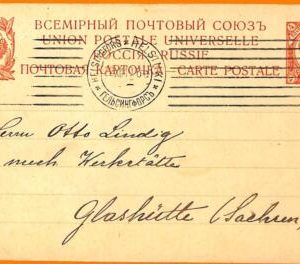 ВСЕМІРНЫЙ ПОЧТОВЫЙ СОЮЗЪ
UNION POSTALE UNIVERSELLE
РОССІЯ RUSSIE
ПОЧТОВАЯ КАРТОЧКА CARTE POSTALE
HELSINGFORS HELSINKI
ГЕЛЬСИНГФОРСЪ
Herrn Otto Lindig
mech Werkstätte
Glashütte (Sachsen)